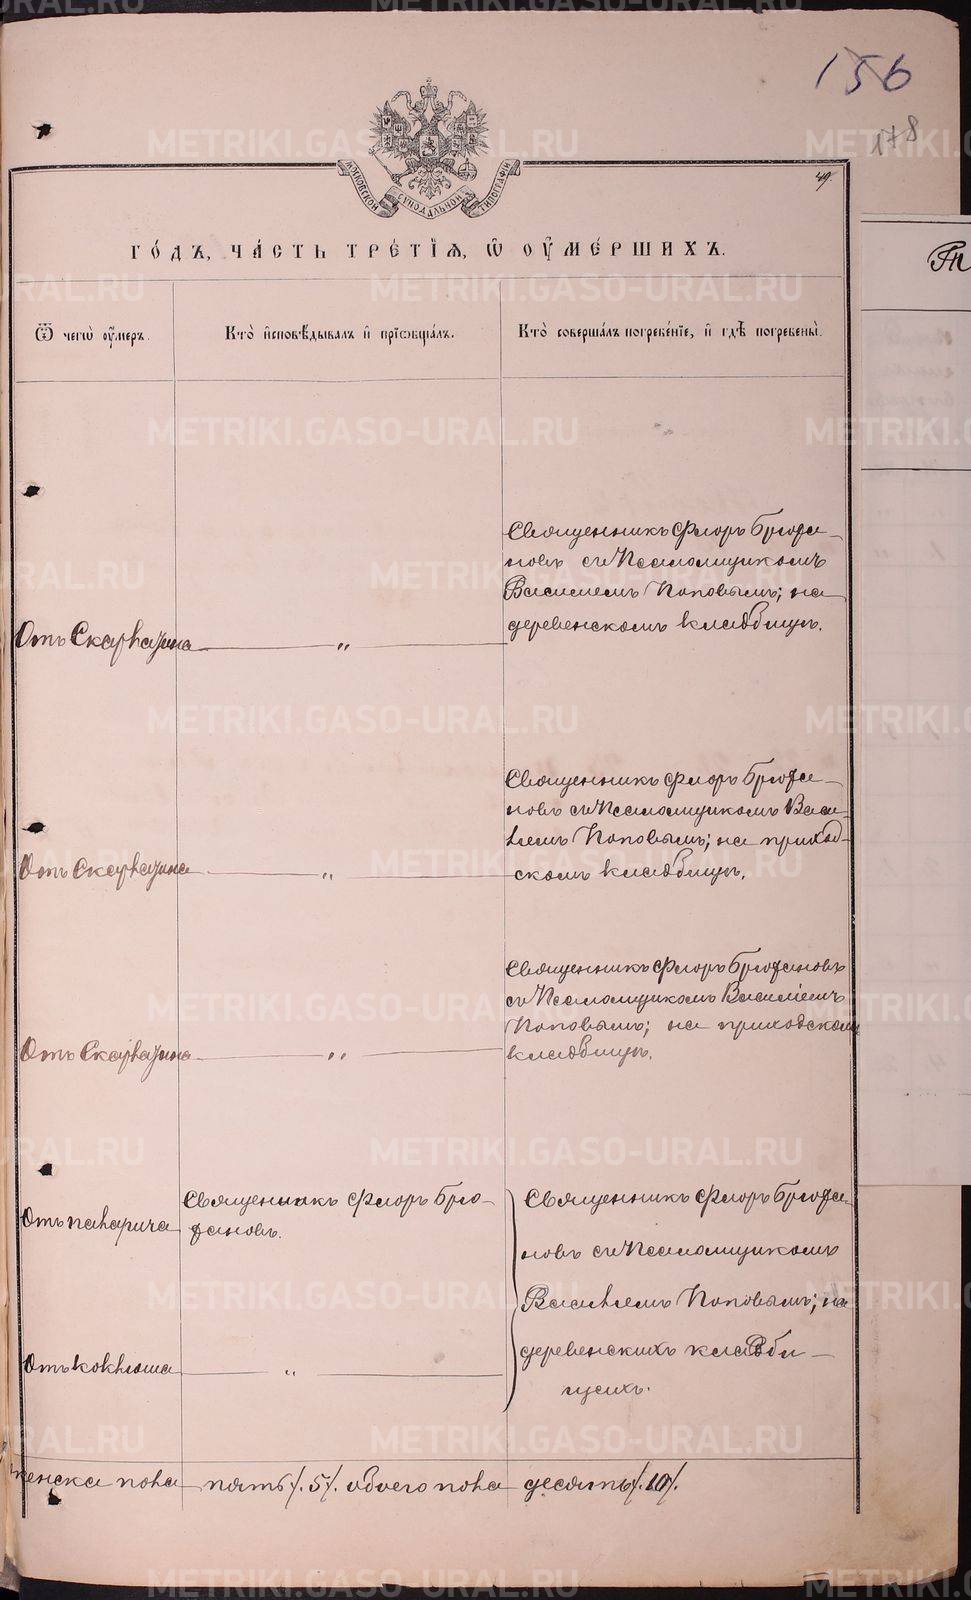 156
178
49.
МОСКОВСКОЙ СѴНОДАЛЬНОЙ ТИПОГРАФІИ
ГО́ДЪ, ЧА́СТЬ ТРЕ́ТІѦ, Ѡ҆ ОУ҆МЕ́РШИХЪ.
Ѿ чегѡ̀ оу҆́меръ.
Кто̀ и҆сповѣ́дывалъ и҆ прїѡбща́лъ.
Кто̀ соверша́лъ погребе́нїе, и҆ гдѣ̀ погребены̀.
Священникъ Флоръ Брюха-
новъ съ Псаломщикомъ
Василіемъ Поповымъ; на
деревенскомъ кладбищѣ.
Отъ Скарлатина "
Священникъ Флоръ Брюха-
новъ съ Псаломщикомъ Васи-
ліемъ Поповымъ; на приход-
скомъ кладбищѣ.
Отъ Скарлатина "
Священникъ Флоръ Брюхановъ
съ Псаломщикомъ Василіемъ
Поповымъ; на приходскомъ
кладбищѣ.
Отъ Скарлатина "
Отъ паларича
Священникъ Флоръ Брю-
хановъ.
Священникъ Флоръ Брюха-
новъ съ Псаломщикомъ
Василіемъ Поповымъ; на
деревенскихъ кладби-
щахъ.
Отъ коклюша "
женска пола пять /.5/. обоего пола десять /.10/.
METRIKI.GASO-URAL.RU